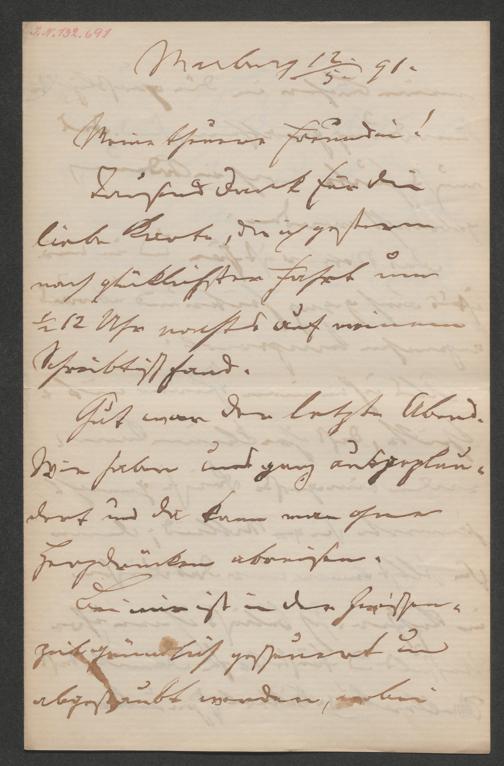 J.N. 132.691
Marburg 12/5 91.
Meine theuere Freundin!
Tausend Dank für die
liebe Karte, die ich gestern
nach glücklichster Fahrt um
½ 12 Uhr nachts auf meinem
Schreibtisch fand.
Gut war der letzte Abend.
Wir haben uns ganz ausgeplau-
dert und da kann man ohne
Herzdrücken abreisen.
Bei mir ist in der Zwischen-
zeit gründlich gescheuert und
abgestaubt worden, wobei